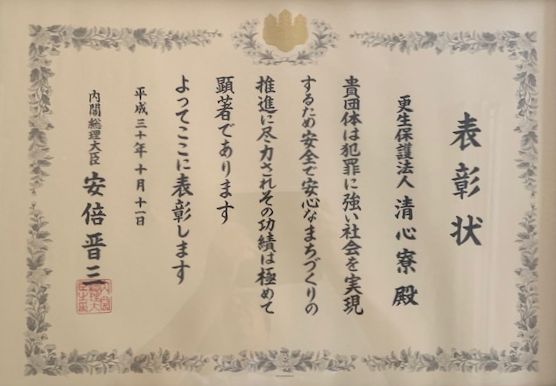 表彰状
更生保護法人 清心寮 殿
貴団体は犯罪に強い社会を実現
するため安全で安心なまちづくりの
推進に尽力されその功績は極めて
顕著であります
よってここに表彰します
平成三十年十月十一日
内閣総理大臣 安倍晋三